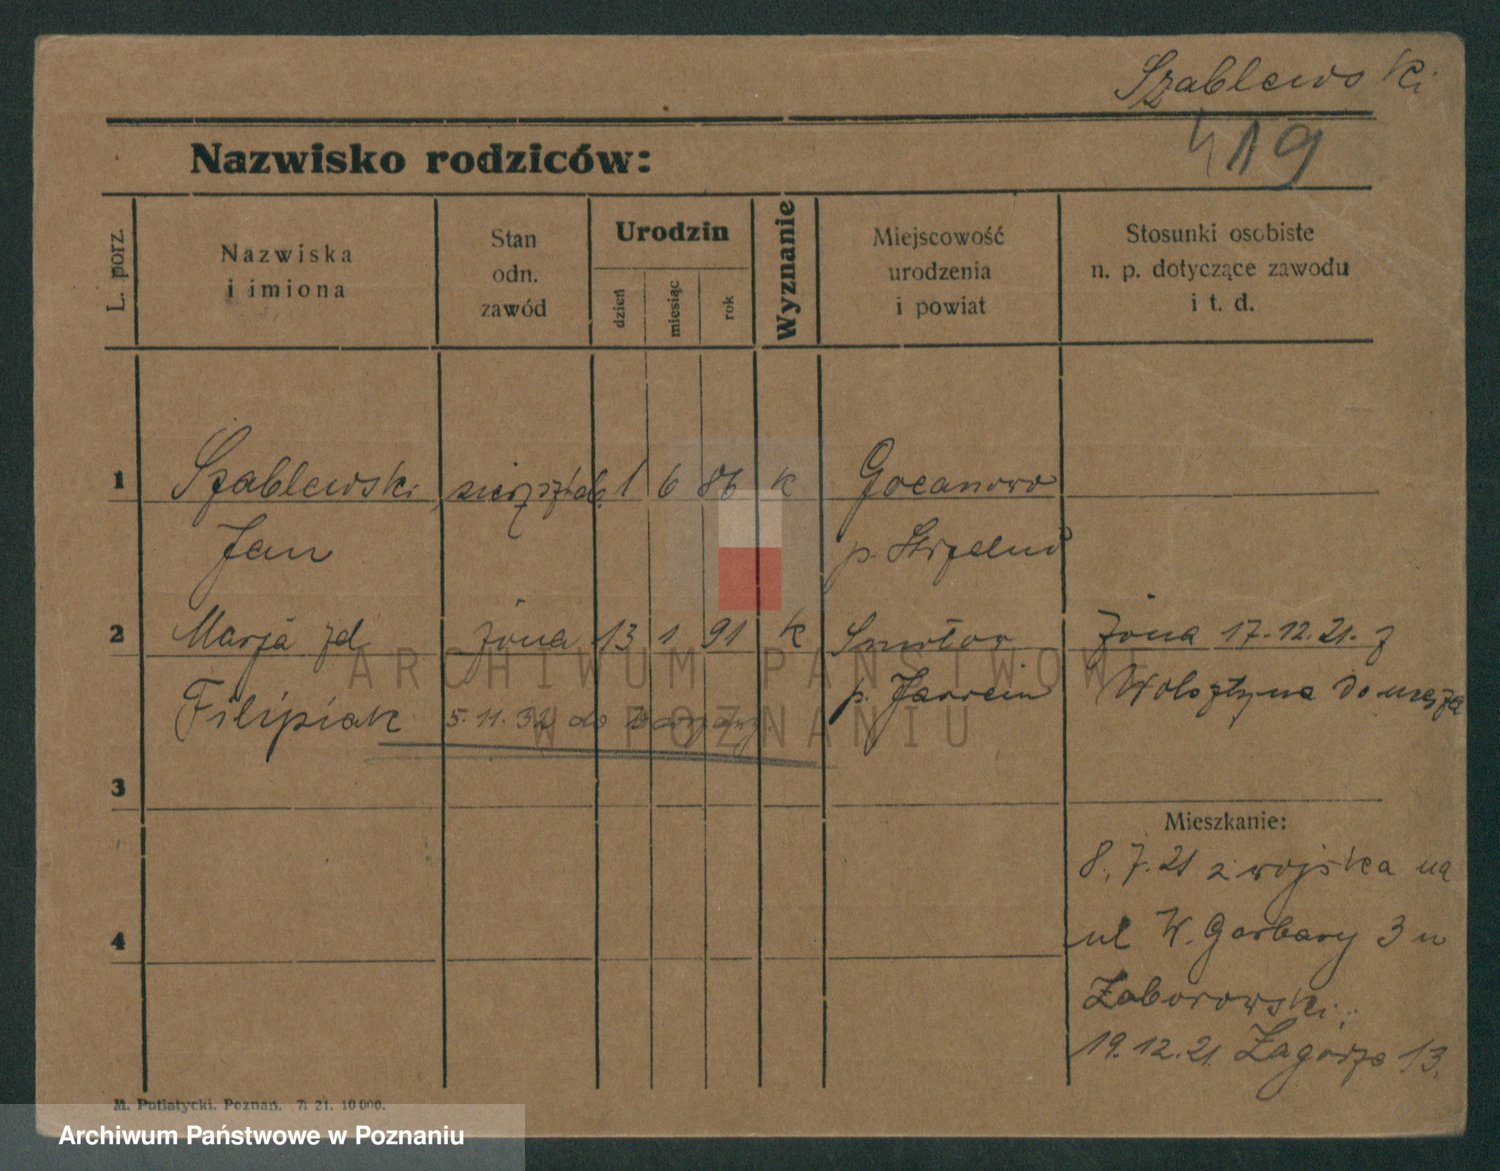 Szablewski
419
Nazwisko rodziców:
L. porz.
Nazwiska
i imiona
Stan
odn.
zawód
Urodzin
dzień
miesiąc
rok
Wyznanie
Miejscowość
urodzenia
i powiat
Stosunki osobiste
n. p. dotyczące zawodu
i t. d.
1 Szablewski 1 6 86 k Gocanowo
Jan p.
2 Marja zd żona 13 1 91 k żona 17.12.21. z
Filipiak 5.11.32 do p. Wolsztyna do męża
3
Mieszkanie:
8.7.21 z wojska na
4 ul W. Garbary 3 u
Zaborowski
19.12.21. Zagórze 13.
M. Putiatycki. Poznań. 7. 21. 10 000.
ARCHIWUM PAŃSTWOWE
W POZNANIU
Archiwum Państwowe w Poznaniu